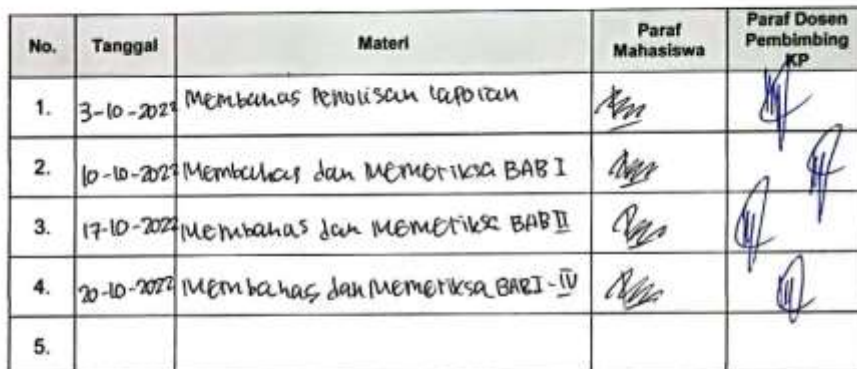 No. Tanggal Materi Paraf Mahasiswa Paraf Dosen Pembimbing KP
1. 3-10-2022 Membahas Penulisan Laporan
2. 10-10-2022 Membahas dan Memeriksa BAB I
3. 17-10-2022 Membahas dan Memeriksa BAB II
4. 20-10-2022 Membahas dan Memeriksa BAB I - IV
5.